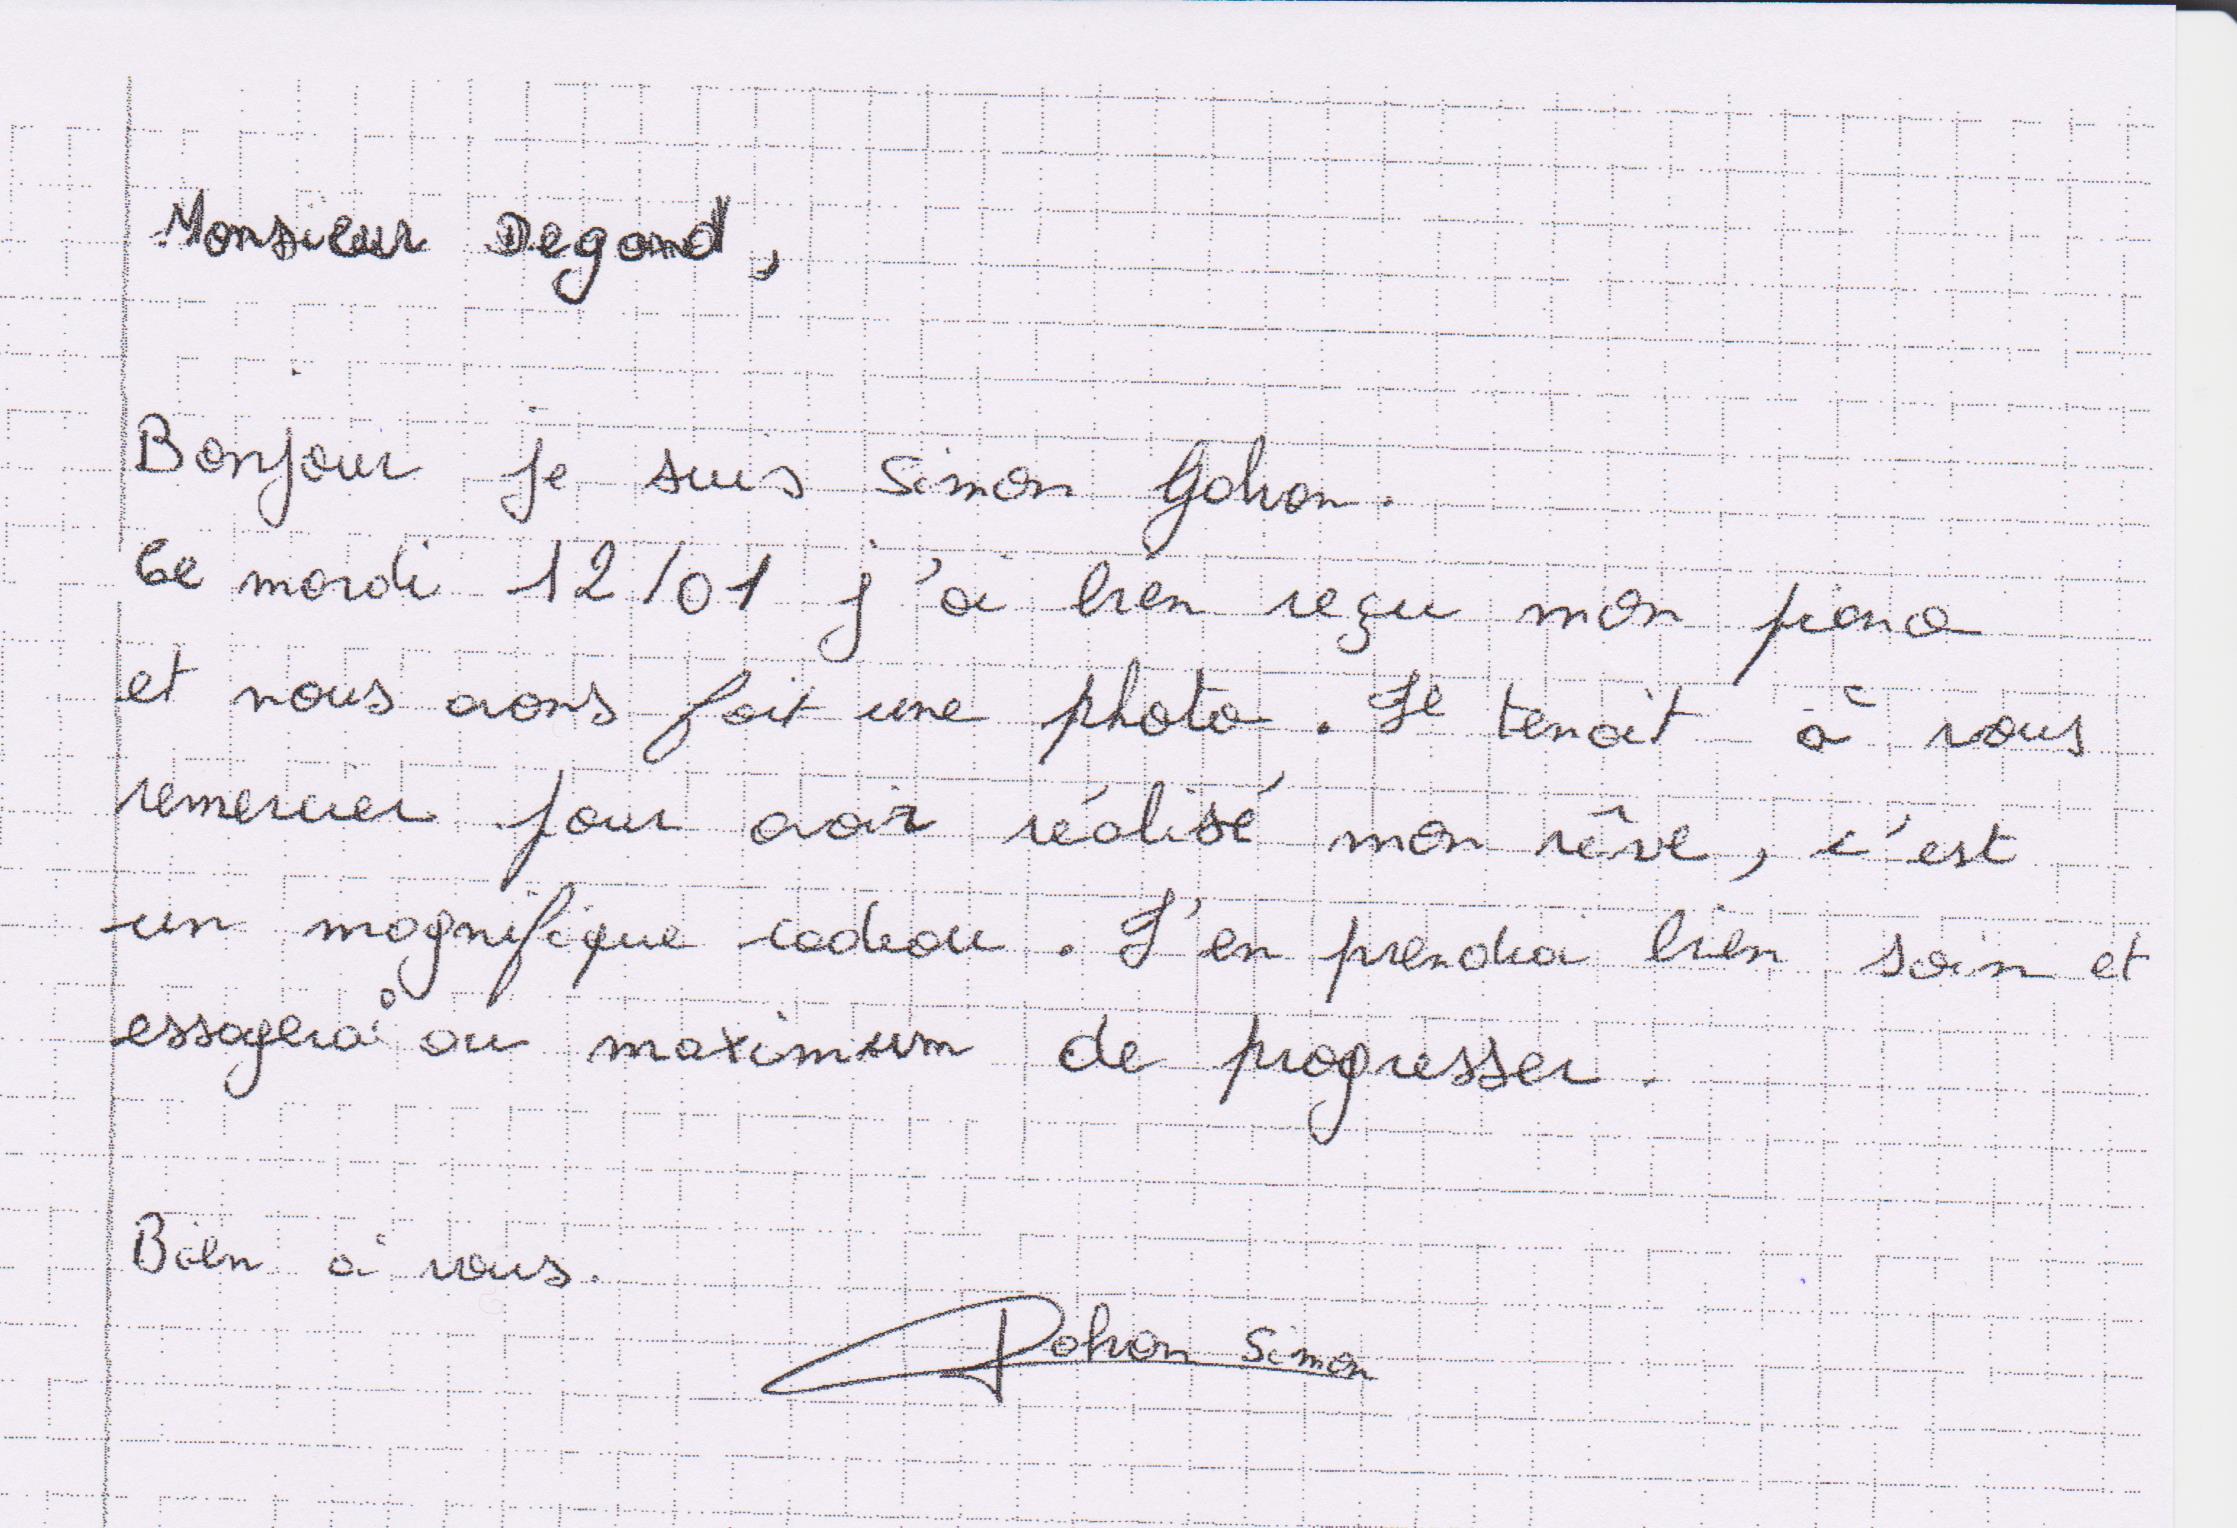 Monsieur Degand,
Bonjour je suis Simon Gohon.
Ce mardi 12/01 j'ai bien reçu mon piano
et nous avons fait une photo. Je tenait à vous
remercier pour avoir réalisé mon rêve, c'est
un magnifique cadeau. J'en prendrai bien soin et
essayerai au maximum de progresser.
Bien à vous.
Dohon Simon